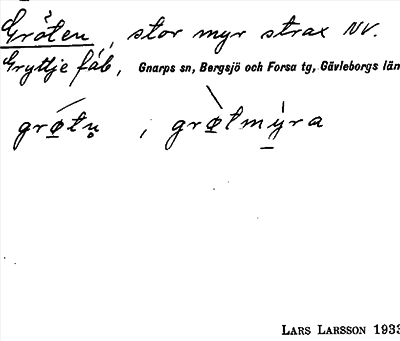 Gröten, stor myr strax NV.
Gryttje fäb, Gnarps sn, Bergsjö och Forsa tg, Gävleborgs län
grøtn̥, grøtmýra
LARS LARSSON 1933